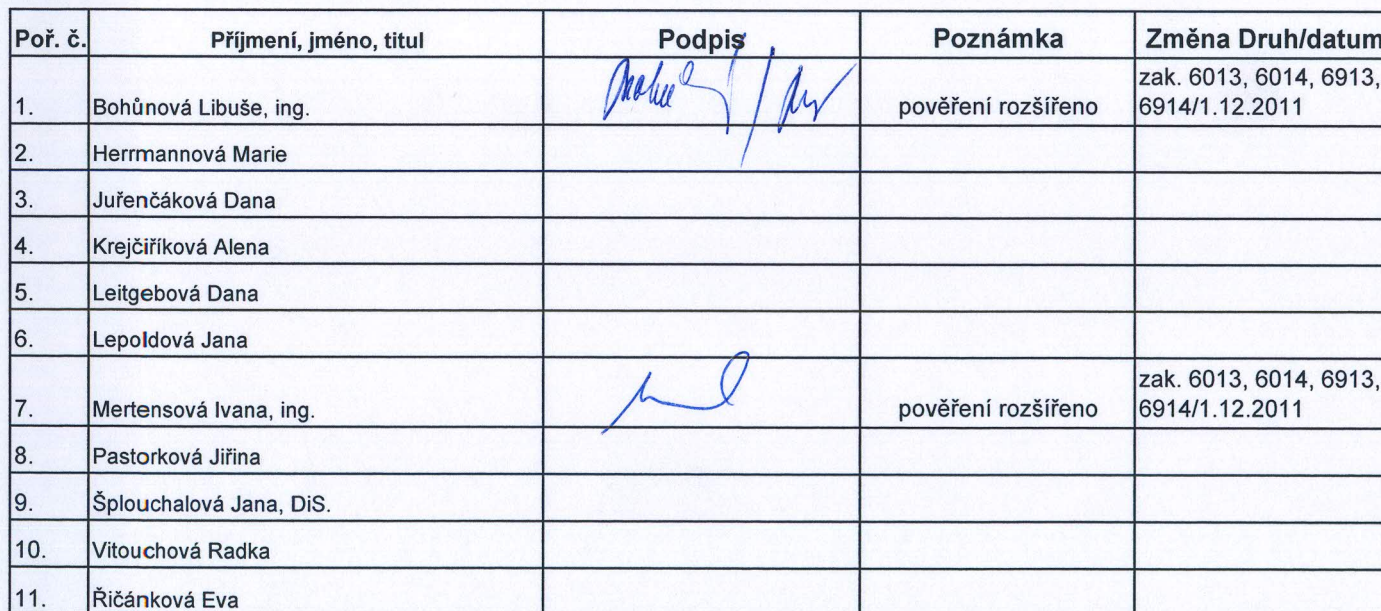 Poř. č. Příjmení, jméno, titul Podpis Poznámka Změna Druh/datum
zak. 6013, 6014, 6913,
1. Bohůnová Libuše, ing. pověření rozšířeno 6914/1.12.2011
2. Herrmannová Marie
3. Juřenčáková Dana
4. Krejčiříková Alena
5. Leitgebová Dana
6. Lepoldová Jana
zak. 6013, 6014, 6913,
7. Mertensová Ivana, ing. pověření rozšířeno 6914/1.12.2011
8. Pastorková Jiřina
9. Šplouchalová Jana, DiS.
10. Vitouchová Radka
11. Řičánková Eva